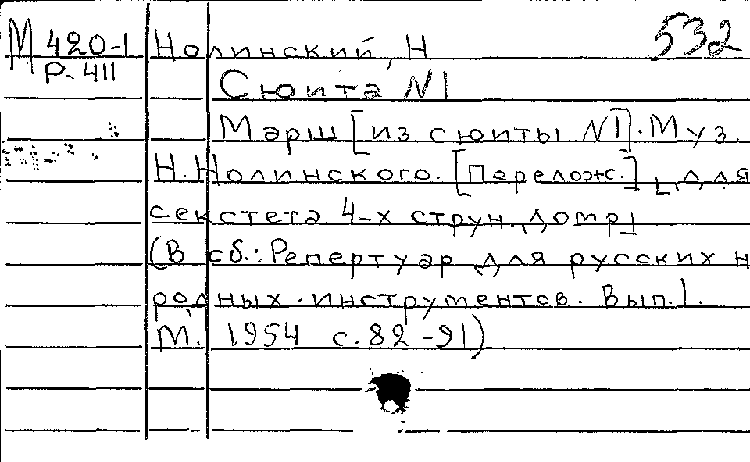 М 420-1 Нолинский, Н 532
Р-411
Сюита N1
Марш [из сюиты N1]. Муз.
Н.Нолинского. [Перелож.] [для
секстета 4-х струн. домр]
(В сб.: Репертуар для русских н
родных инструментов. Вып.1.
М. 1954 с.82-91)